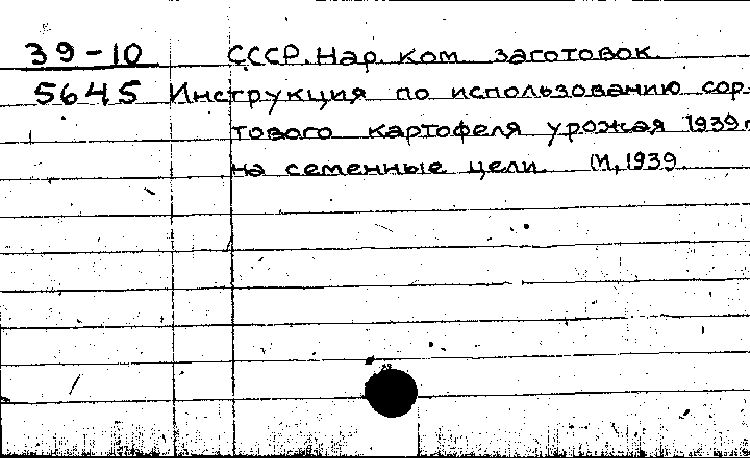 39-10 СССР. Нар. ком. заготовок.
5645 Инструкция по использованию сор-
тового картофеля урожая 1939 г.
на семенные цели. М, 1939.